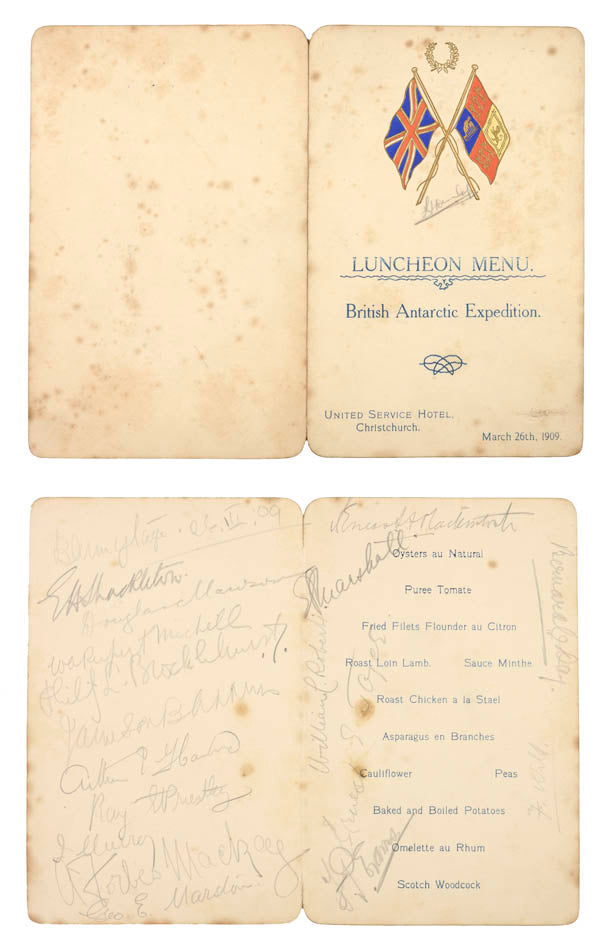 LUNCHEON MENU.
British Antarctic Expedition.
UNITED SERVICE HOTEL,
Christchurch.
March 26th, 1909.
26.III.09
EHShackleton.
Douglas Mawson
W A Rupert Michell
Philip L. Brocklehurst.
Jameson B Adams
Ray E Priestley
J. Murray
A Forbes Mackay
Geo. E. Marston.
Æneas A Mackintosh
E Marshall.
William C Roberts
Ernest Joyce
F. Evans
Oysters au Natural
Puree Tomate
Fried Filets Flounder au Citron
Roast Loin Lamb. Sauce Minthe
Roast Chicken a la Stael
Asparagus en Branches
Cauliflower Peas
Baked and Boiled Potatoes
Omelette au Rhum
Scotch Woodcock
Bernard Day.
F. Wild